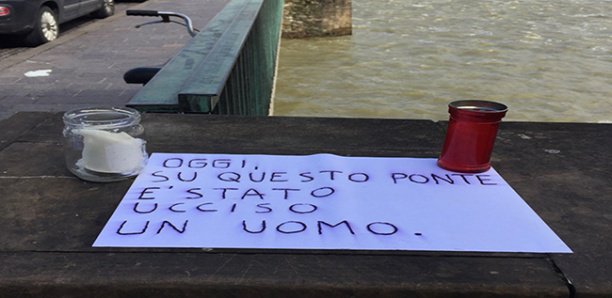 OGGI,
SU QUESTO PONTE
E' STATO
UCCISO
UN UOMO.